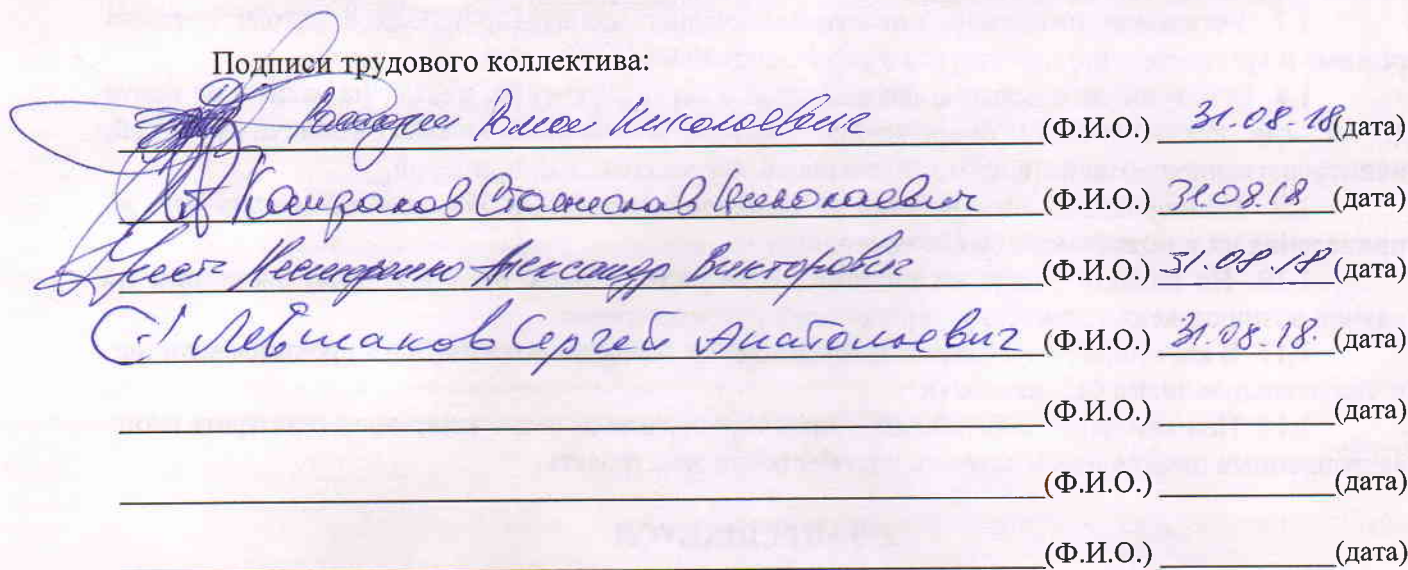 Подписи трудового коллектива:
Николаевич (Ф.И.О.) 31.08.18 (дата)
Кандаков Станислав Николаевич (Ф.И.О.) 31.08.18 (дата)
Нестеренко Александр Викторович (Ф.И.О.) 31.08.18 (дата)
Левшаков Сергей Анатольевич (Ф.И.О.) 31.08.18. (дата)
(Ф.И.О.) (дата)
(Ф.И.О.) (дата)
(Ф.И.О.) (дата)